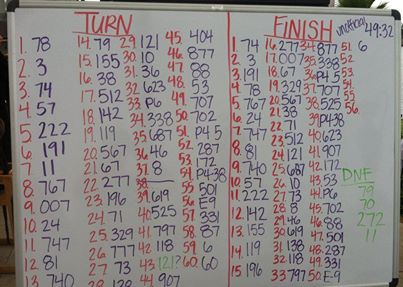 TURN
1. 78
2. 3
3. 74
4. 57
5. 222
6. 191
7. 11
8. 767
9. 007
10. 24
11. 747
12. 81
13. 740
14. 79
15. 155
16. 38
17. 512
18. 142
19. 119
20. 567
21. 67
22. 277
23. 196
24. 71
25. 329
26.
27. 73
28. 138
29. 121
30. 10
31. 36
32. 623
33. P6
34. 338
35. 687
36. 46
37. 8
38.
39. 619
40. 525
41. 797
42. 118
43. 121?
44. 907
45. 404
46. 877
47. 88
48. 53
49. 707
50. 702
51. P4 5
52. 287
53. 172
54. P4-38
55. 501
56. E9
57. 331
58.
59. 6
60. 60
FINISH
unofficial 49:32
1. 74
2. 3
3. 191
4. 78
5. 767
6. 24
7. 747
8. 81
9. 740
10. 57
11. 222
12. 142
13. 155
14. 119
15. 196
16. 277
17. 007
18. 67
19. 329
20. 567
21. 38
22. 71
23. 512
24. 121
25. 687
26. 10
27. 73
28. 8
29. 46
30. 619
31. 138
32. 118
33. 797
34. 877
35. 338
36. P4.5
37. 707
38. 525
39. P438
40. 623
41. 907
42. 172
43. 53
44. P6
45. 702
46. 88
47. 501
48. 287
49. 331
50. E-9
51. 6
52.
53.
54.
55.
56.
DNF
79
70
272
11